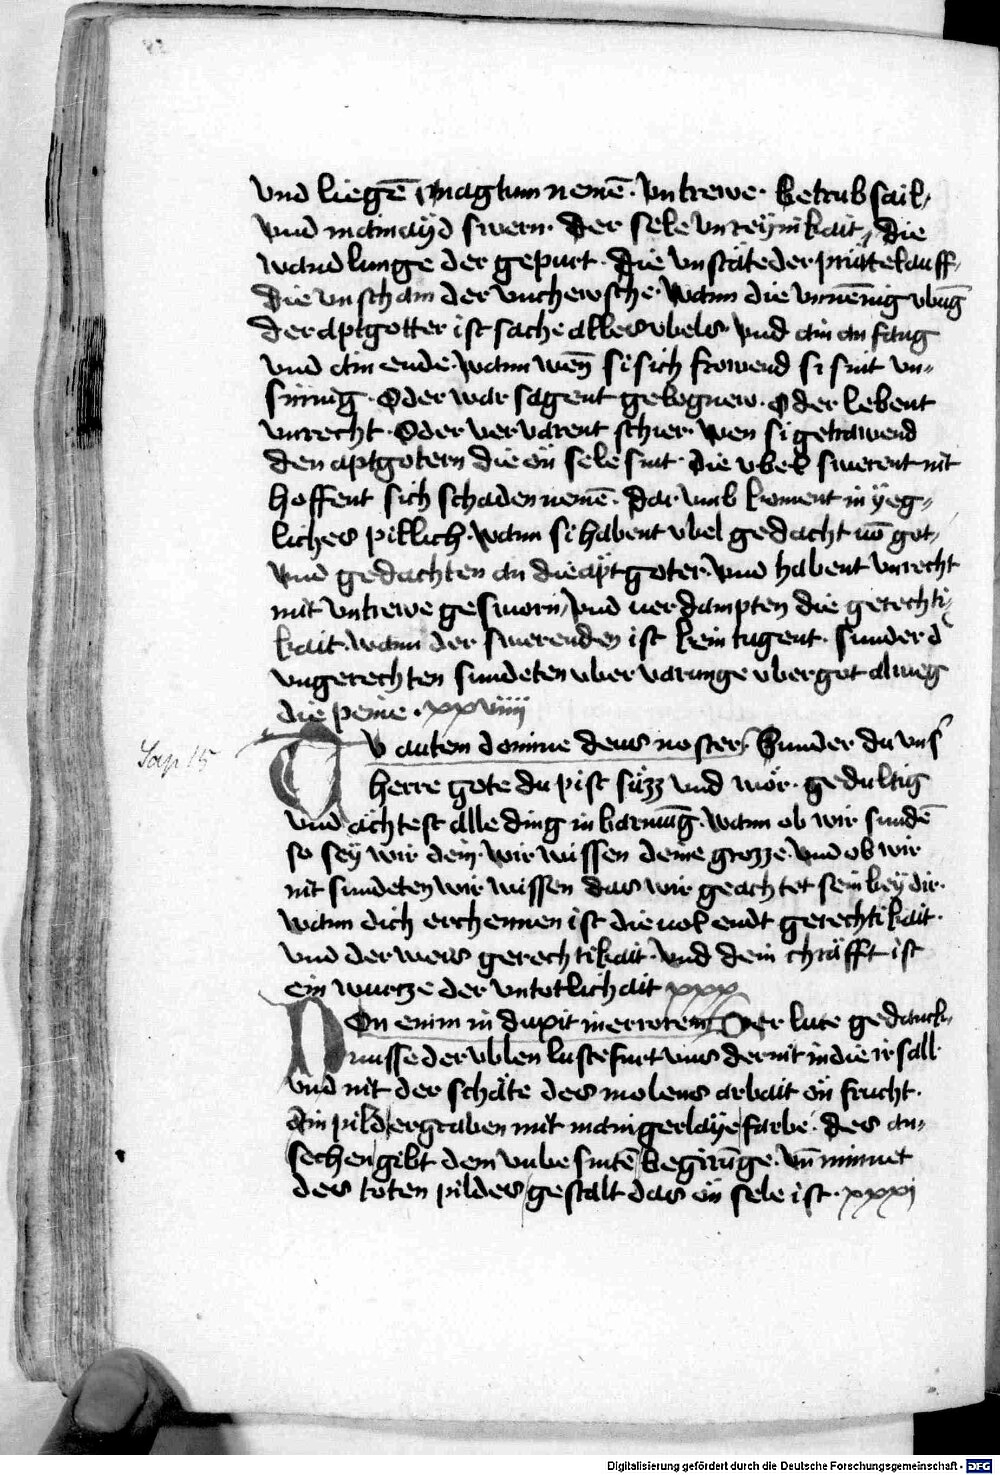 vnd liegē magtum nemē · vntrewe · betrubsail,
vnd mainayd swern · Der sele vnreynikait, die
wandlunge der gepurt · Die vnstäte der prüttelauff,
die vnscham der vnchewsche · wann die vnnēnig vbūg
der aptgotter ist sache alles vbels · vnd ain anfang
vnd ain ende · wann wēn si sich frowend si sint vn„
sinnig · Oder war sagent gelognew · Oder lebent
vnrecht · Oder ververent schier · wen si getrawend
den aptgotern die ön sele sint · die vbel swerent nit
hoffent sich schaden nemē · Dar vmb koment in yeg„
liches pillich · wann si habent vbel gedacht uō got,
vnd gedachten an die aptgoter · vnd habent vnrecht
mit vntrewe gesworn, vnd uerdampten die gerechti„
kait · wann der swerenden ist kein tugent · sunder d
vngerechten sundeten vbervarunge vberget alweg
die peine · xxviiii
Sap 15
Tv autem domine deus noster · Sunder du vns
herre gote du pist süzz vnd wor · gedultig
vnd achtest alle ding in barmūg · wann ob wir sundē
so sey wir dein · wir wissen deine grozze · vnd ob wir
nit sundeten wir wissen das wir geachtet sein bey dir ·
wann dich erchennen ist die uolendt gerechtikait ·
vnd der weis gerechtikait · vnd dein chräfft ist
ein wurtze der vntotlichait xxx
Non enim in duxit in errorem Der lute gedanck„
nusse der vblen luste furt vns der nit in die irsall ·
vnd nit der schäte des molens arbait ön frucht ·
Ain pild ergraben mit manigerlaye farbe · des an„
sechen gibt dem vnbesintē begirūge · vn̄ minnet
des toten pildes gestalt das ön sele ist · xxxi
Digitalisierung gefördert durch die Deutsche Forschungsgemeinschaft - DFG